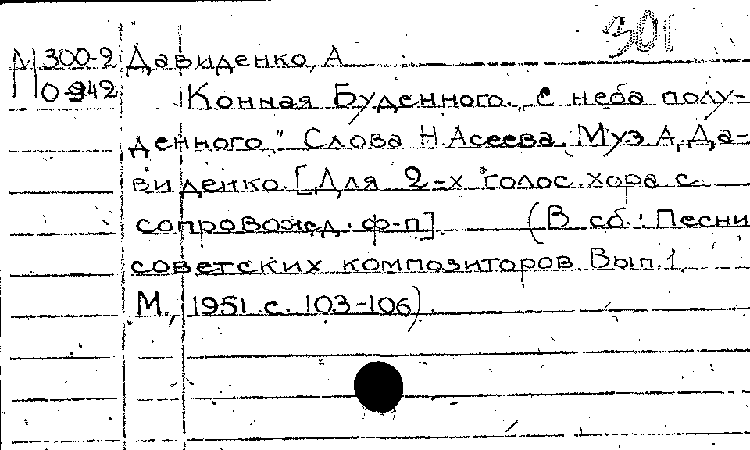 301
М 300-2 Давиденко, А.
П 0-942 Конная Буденного. „С неба полу-
денного." Слова Н. Асеева. Муз. А. Да-
виденко. [Для 2-х голос. хора с
сопровожд. ф-п] (В сб.: Песни
советских композиторов. Вып. 1.
М., 1951. с. 103-106).